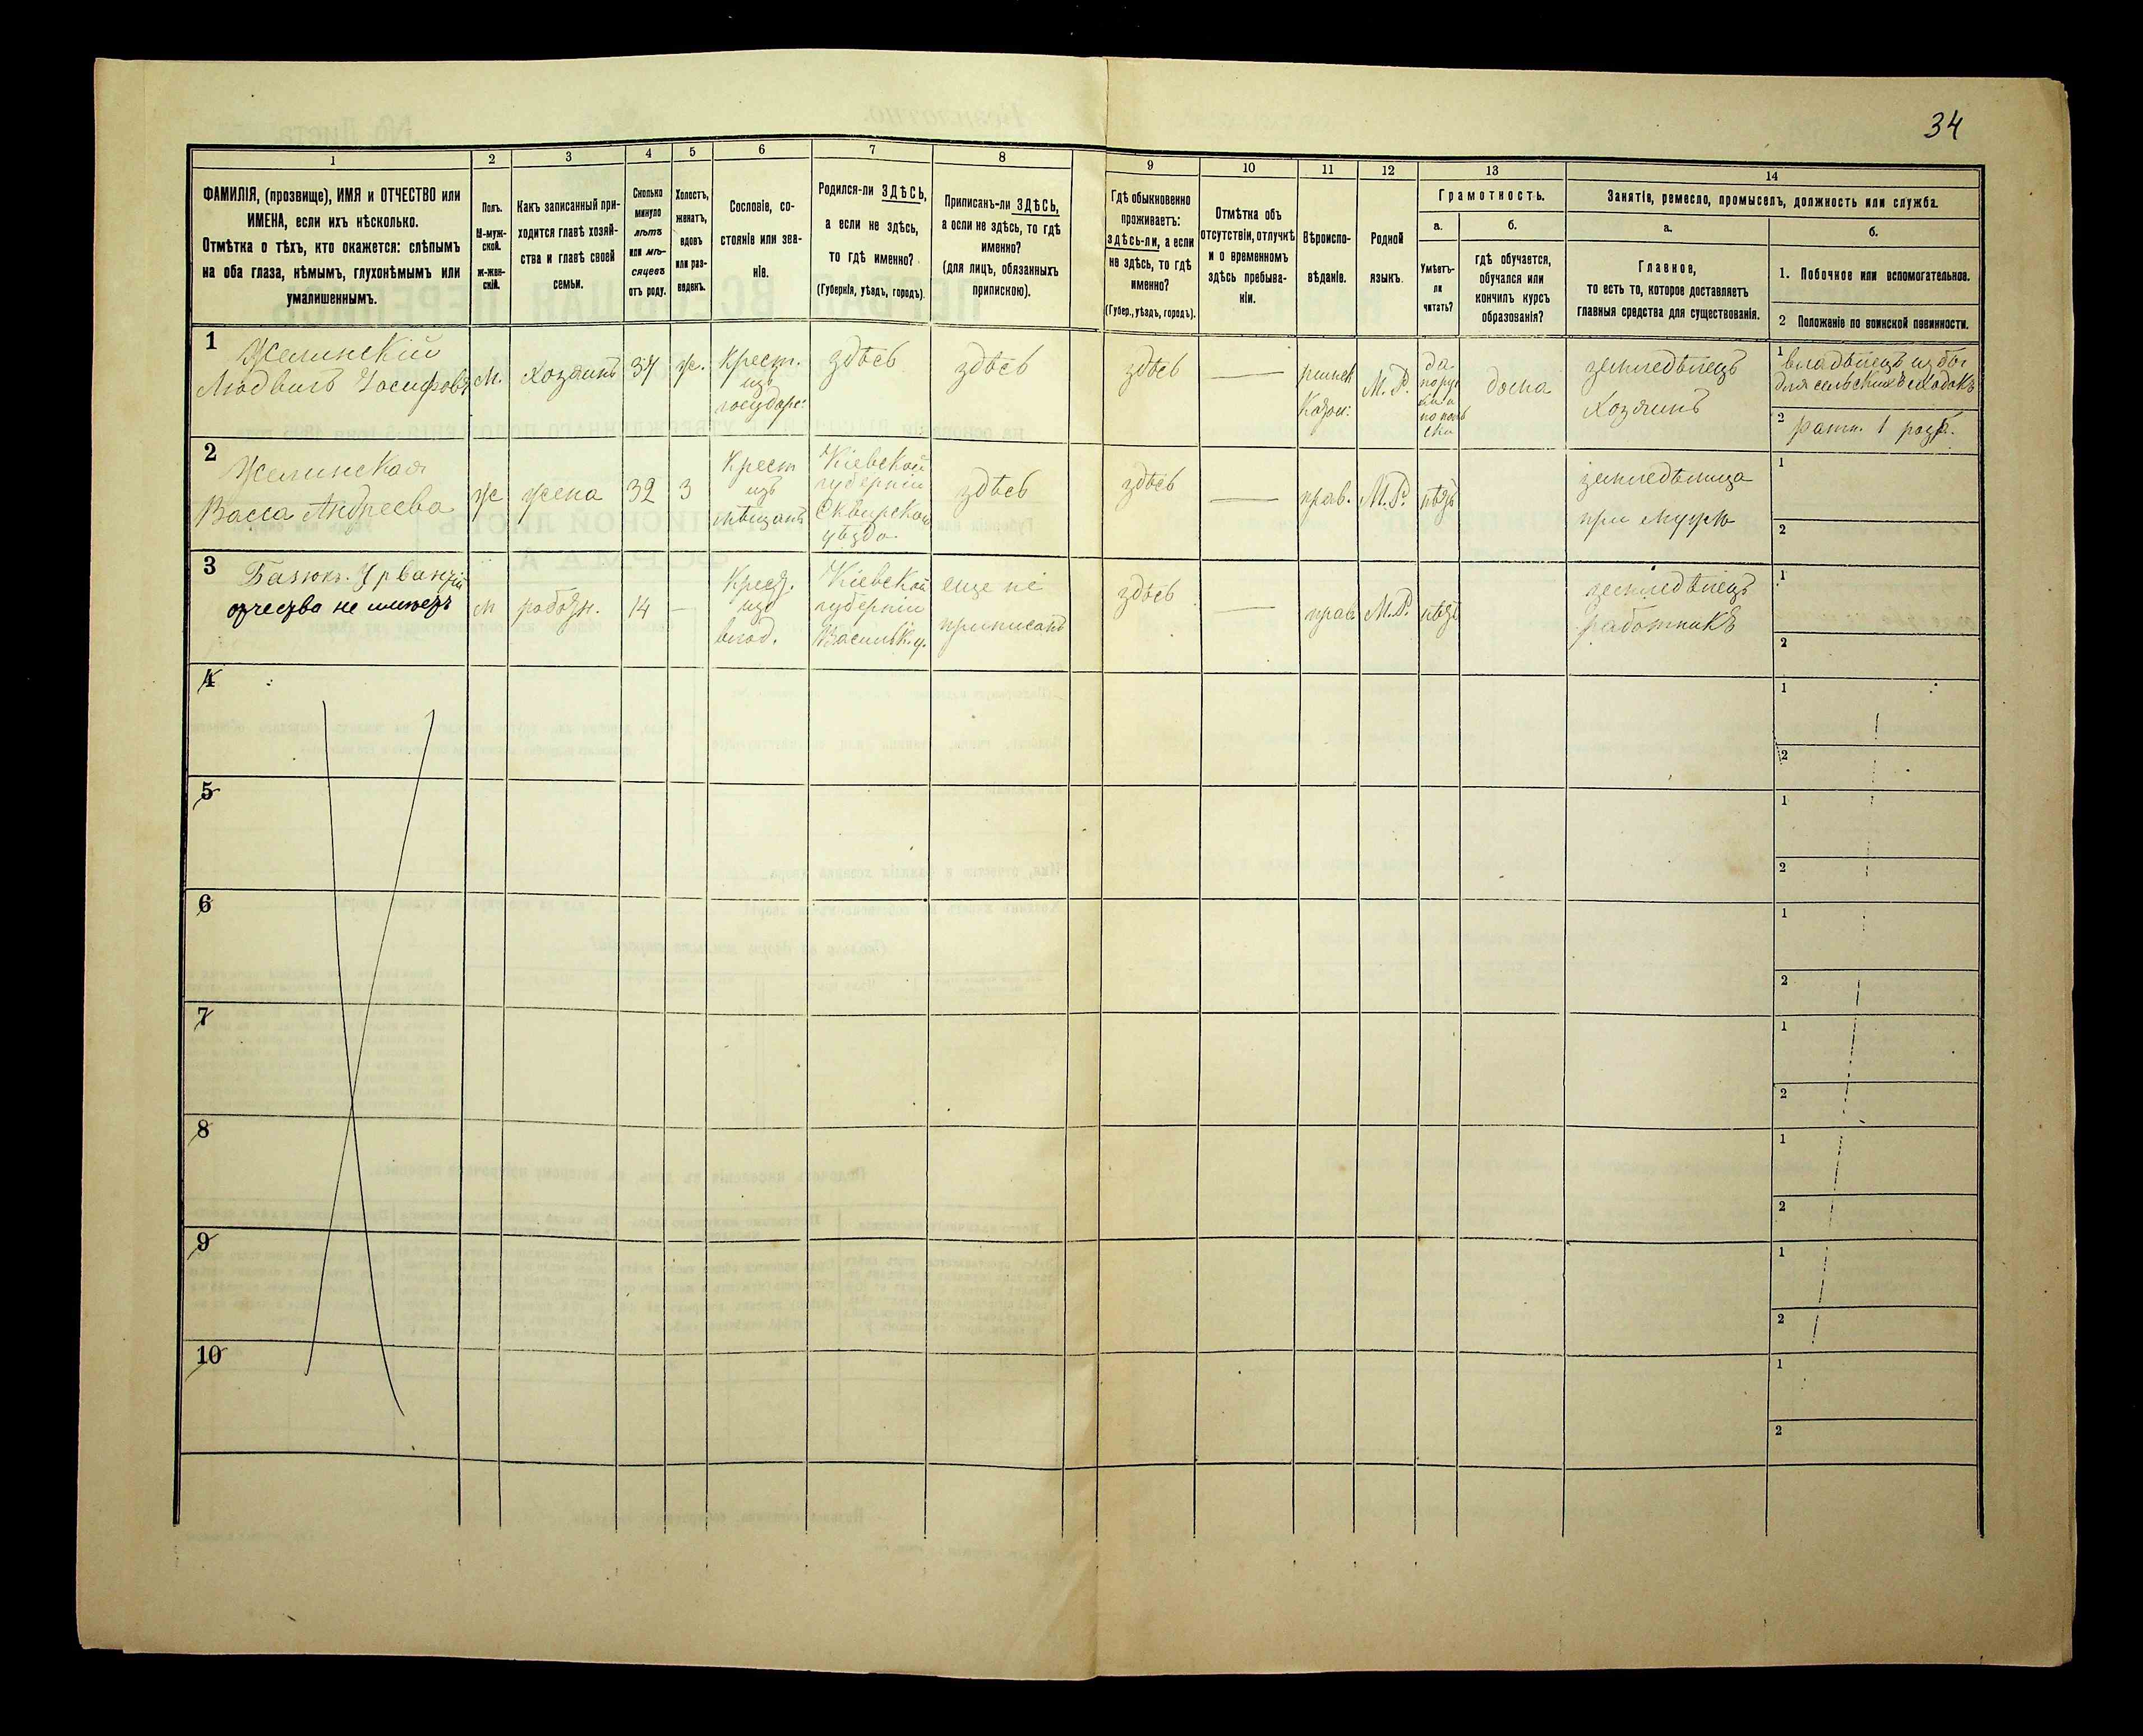 34
1
2
3
4
5
6
7
8
9
10
11
12
13
14
ФАМИЛІЯ, (прозвище), ИМЯ и ОТЧЕСТВО или
ИМЕНА, если ихъ нѣсколько.
Отмѣтка о тѣхъ, кто окажется: слѣпымъ
на оба глаза, нѣмымъ, глухонѣмымъ или
умалишеннымъ.
Полъ.
М-муж-
ской.
Ж-жен-
скій.
Какъ записанный при-
ходится главѣ хозяй-
ства и главѣ своей
семьи.
Сколько
минуло
лѣтъ
или мѣ-
сяцевъ
отъ роду.
Холостъ,
женатъ,
вдовъ
или раз-
веденъ.
Сословіе, со-
стояніе или зва-
ніе.
Родился-ли ЗДѢСЬ,
а если не здѣсь,
то гдѣ именно?
(Губернія, уѣздъ, городъ).
Приписанъ-ли ЗДѢСЬ,
а если не здѣсь, то гдѣ
именно?
(для лицъ, обязанныхъ
припискою).
Гдѣ обыкновенно
проживаетъ:
здѣсь-ли, а если
не здѣсь, то гдѣ
именно?
(Губер., уѣздъ, городъ).
Отмѣтка объ
отсутствіи, отлучкѣ
и о временномъ
здѣсь пребыва-
ніи.
Вѣроиспо-
вѣданіе.
Родной
языкъ.
Грамотность.
а.
Умѣетъ-
ли
читать?
б.
гдѣ обучается,
обучался или
кончилъ курсъ
образованія?
Занятіе, ремесло, промыселъ, должность или служба.
а.
Главное,
то есть то, которое доставляетъ
главныя средства для существованія.
б.
1. Побочное или вспомогательное.
2 Положеніе по воинской повинности.
1
Желинскій
Людвигъ Іосифовъ
М.
Хозяинъ
37
ж.
Крест.
изъ
государс:
здѣсь
здѣсь
здѣсь
—
римск
Катол:
М. Р.
да
по рус
ски и
по поль
ски
дома
земледѣлецъ
Хозяинъ
1
владѣлецъ
для сельских
2 ратн. 1 разр.
2
Желинская
Васса Андреева
Ж
жена
32
З
Крест
изъ
мѣщанъ
Кіевской
губерніи
Сквирскаго
уѣзда
здѣсь
здѣсь
—
прав.
М. Р.
нѣтъ
земледѣлица
при мужѣ
1
2
3
Базюкъ
отчества не имѣетъ
М
работн.
14
—
Крест.
изъ
влад.
Кіевской
губерніи
Васильк. у.
еще не
приписанъ
здѣсь
—
прав
М. Р.
нѣтъ
земледѣлецъ
работникъ
1
2
4
1
2
5
1
2
6
1
2
7
1
2
8
1
2
9
1
2
10
1
2